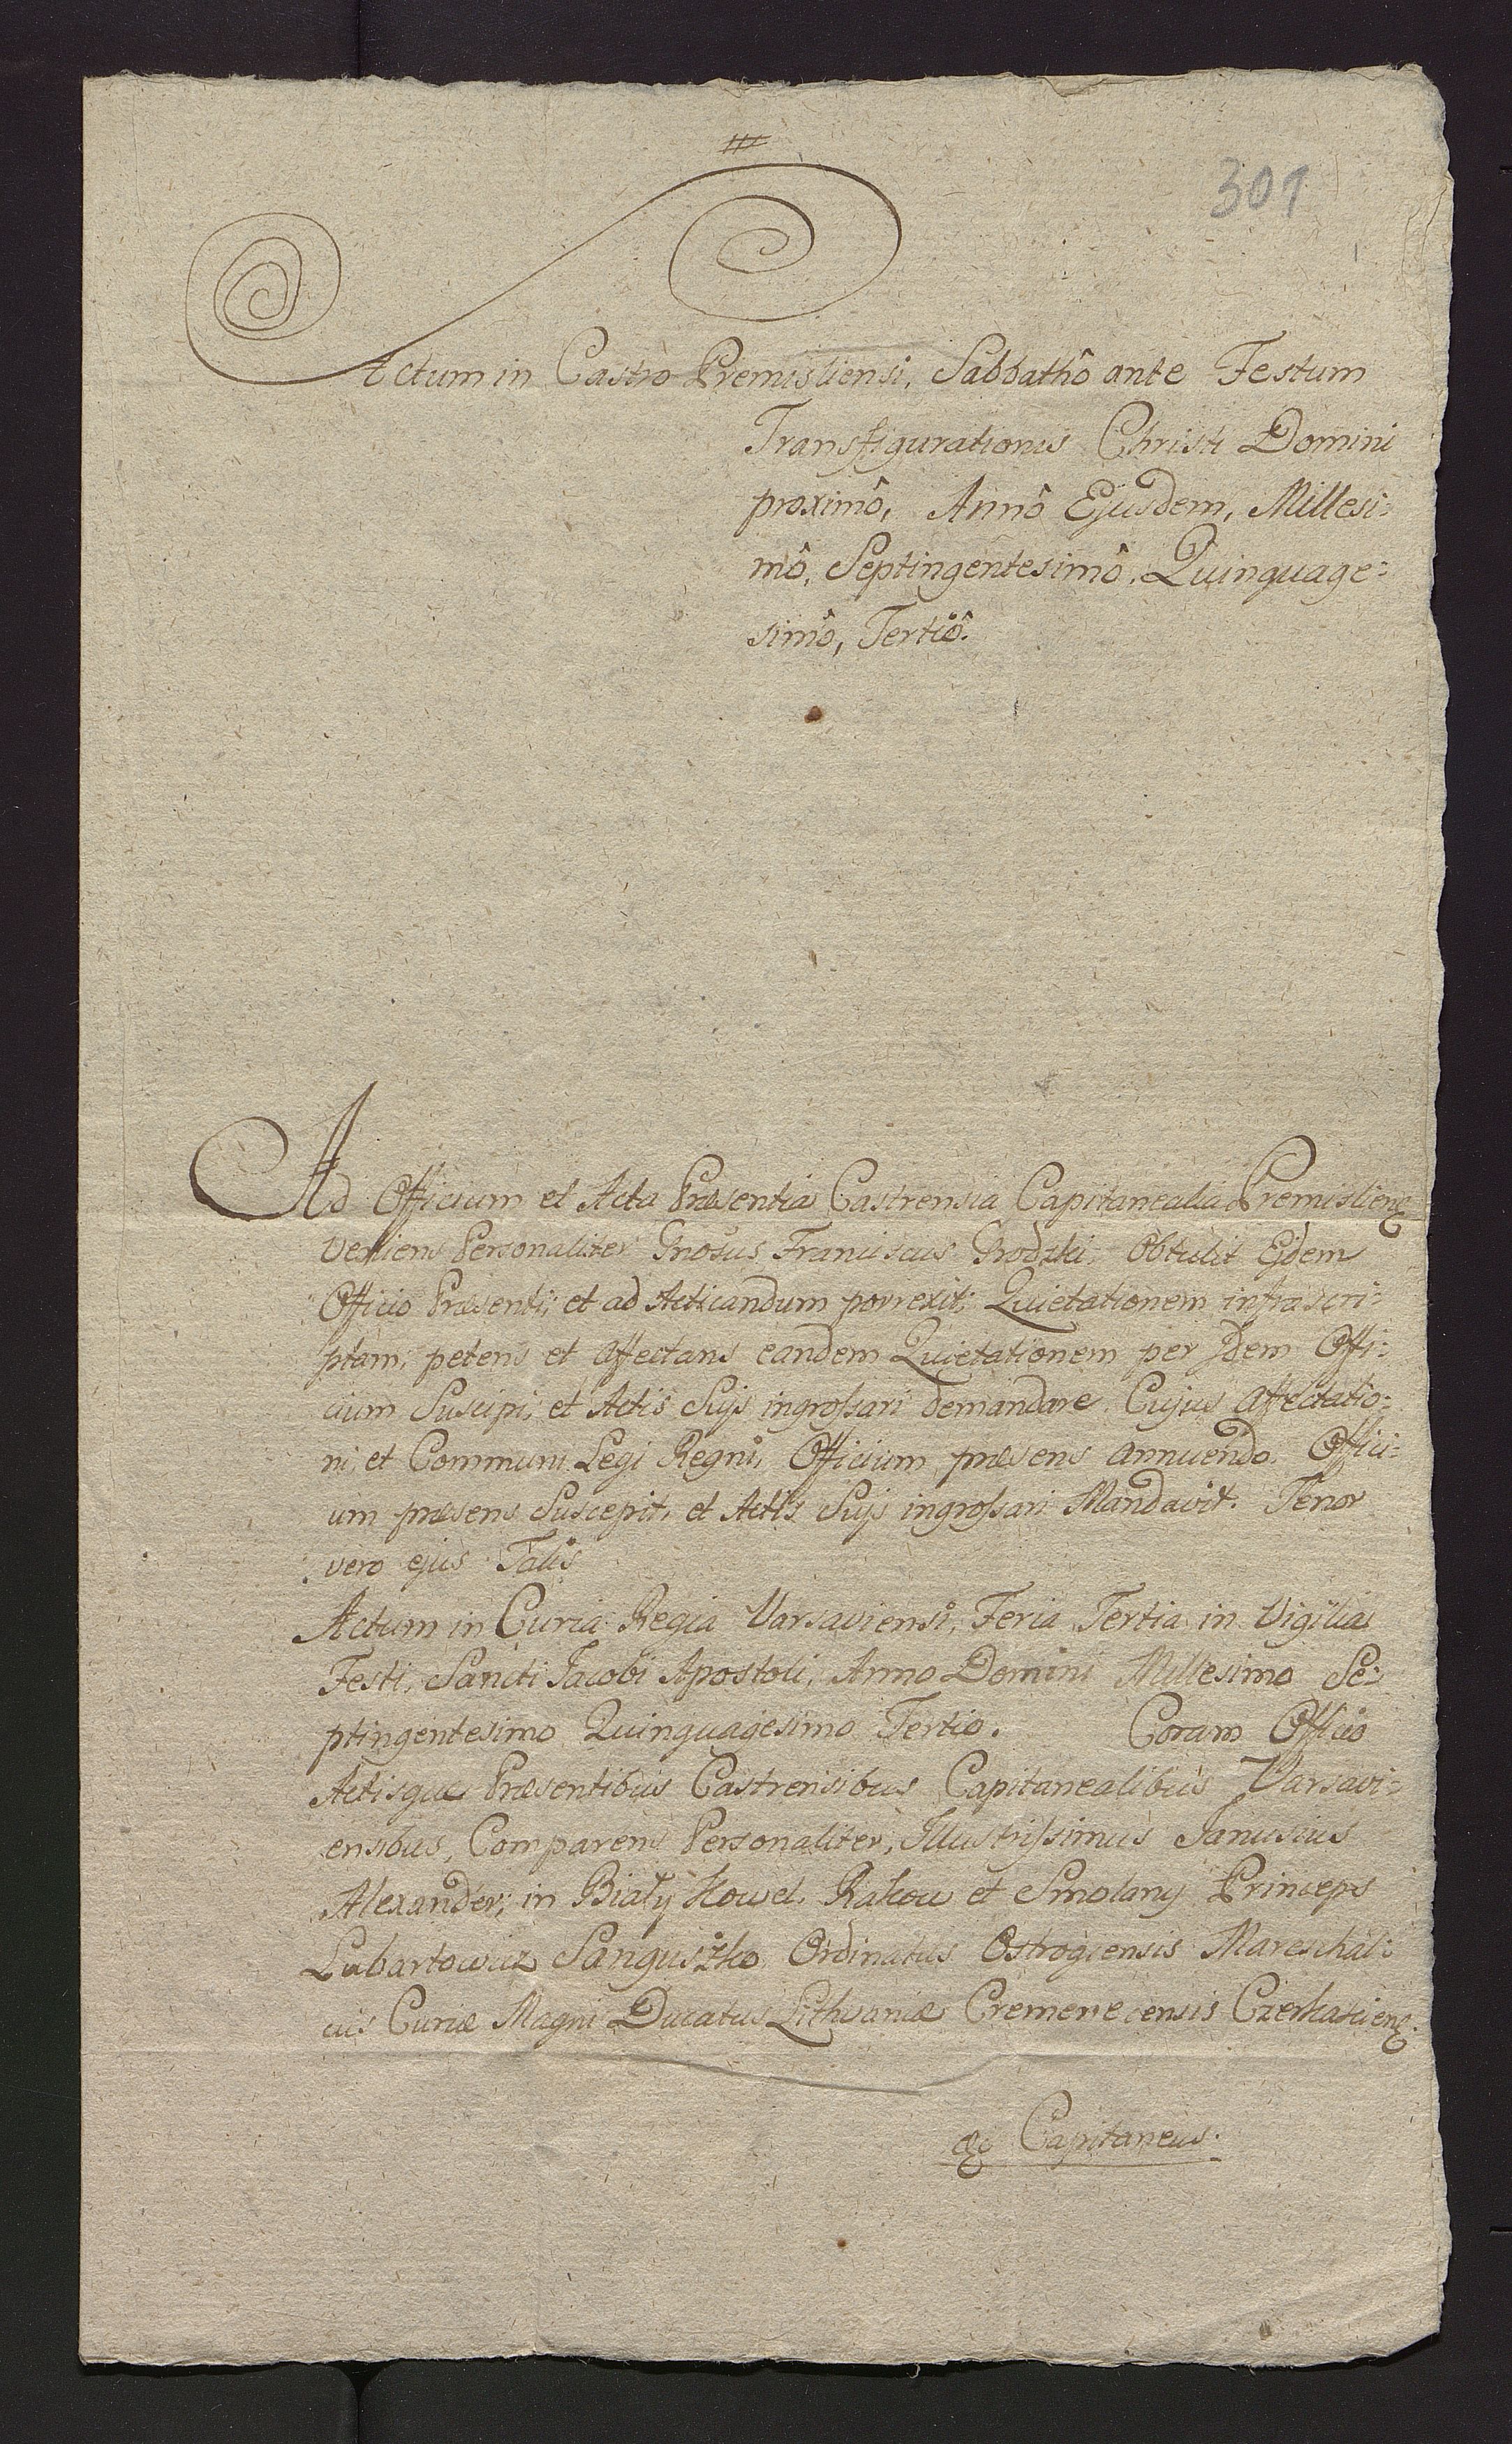 301
Actum in Castro Premisliensi, Sabbathô ante Festum
Transfigurationis Christi Domini
proximô, Annô Ejusdem, Millesi:
mô, Septingentesimô, Quinquage:
simô, Tertiô.
Ad Officium et Acta Præsentia Castrensia Capitanealia Premisliens
Veniens Personaliter Gnosus Franciscus Grodzki, Obtulit Eidem
Officio Præsenti, et ad Acticandum porrexit, Quietationem infrascri:
ptam, petens et affectans eandem Quietationem per Idem Offi:
cium Suscipi, et Actis Suis ingrossari demandare. Cujus Affectatio:
ni, et Communi Legi Regni, Officium præsens annuendo. Offici:
um præsens Suscepit, et Actis Suis ingrossari Mandavit. Tenor
vero ejus Talis
Actum in Curia Regia Varsaviensi, Feria Tertia in Vigilia
Festi, Sancti Jacobi Apostoli, Anno Domini Millesimo Se:
ptingentesimo Quinquagesimo Tertio. Coram Officio
Actisque Præsentibus Castrensibus Capitanealibus Varsavi:
ensibus, Comparens Personaliter, Illustrissimus Janusius
Alexander, in Biały Kowel, Rakow et Smolany Princeps
Lubartowicz Sanguszko Ordinatus Ostrogiensis Mareschal:
cus Curiæ Magni Ducatus Lithvaniæ Cremenecensis Czerkasciens.
&c Capitaneus.